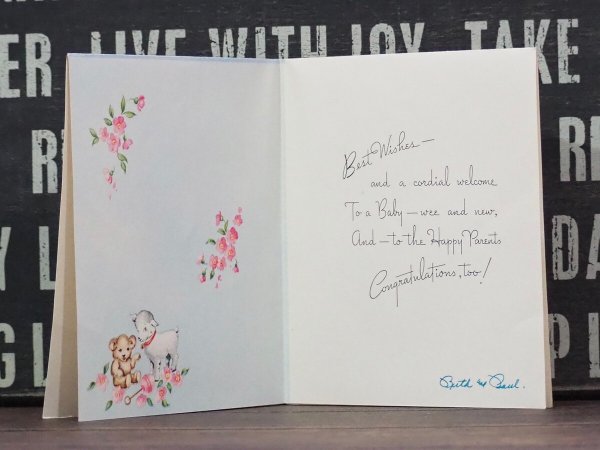 ER LIVE WITH JOY TAKE
Best Wishes —
and a cordial welcome
To a Baby — wee and new,
And — to the Happy Parents
Congratulations, too!
Paul.